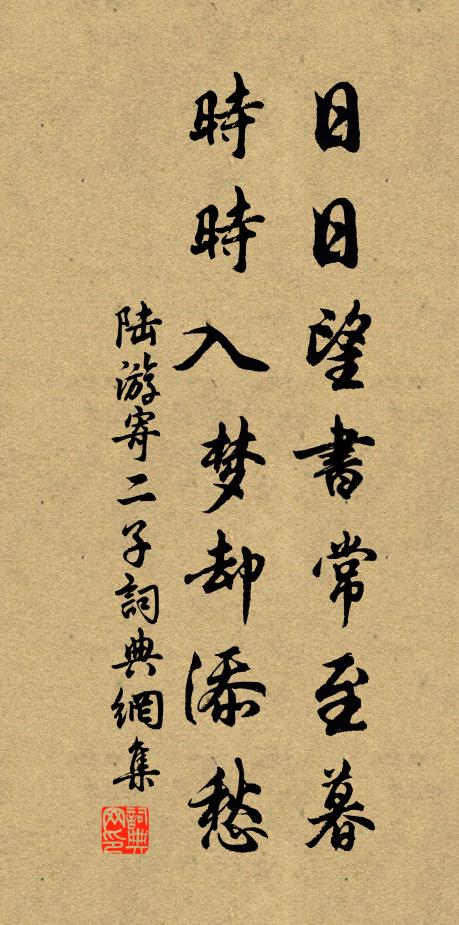 日日望書常至暮
時時入梦却添愁
陆游寄二子詞典網集
詞典網印